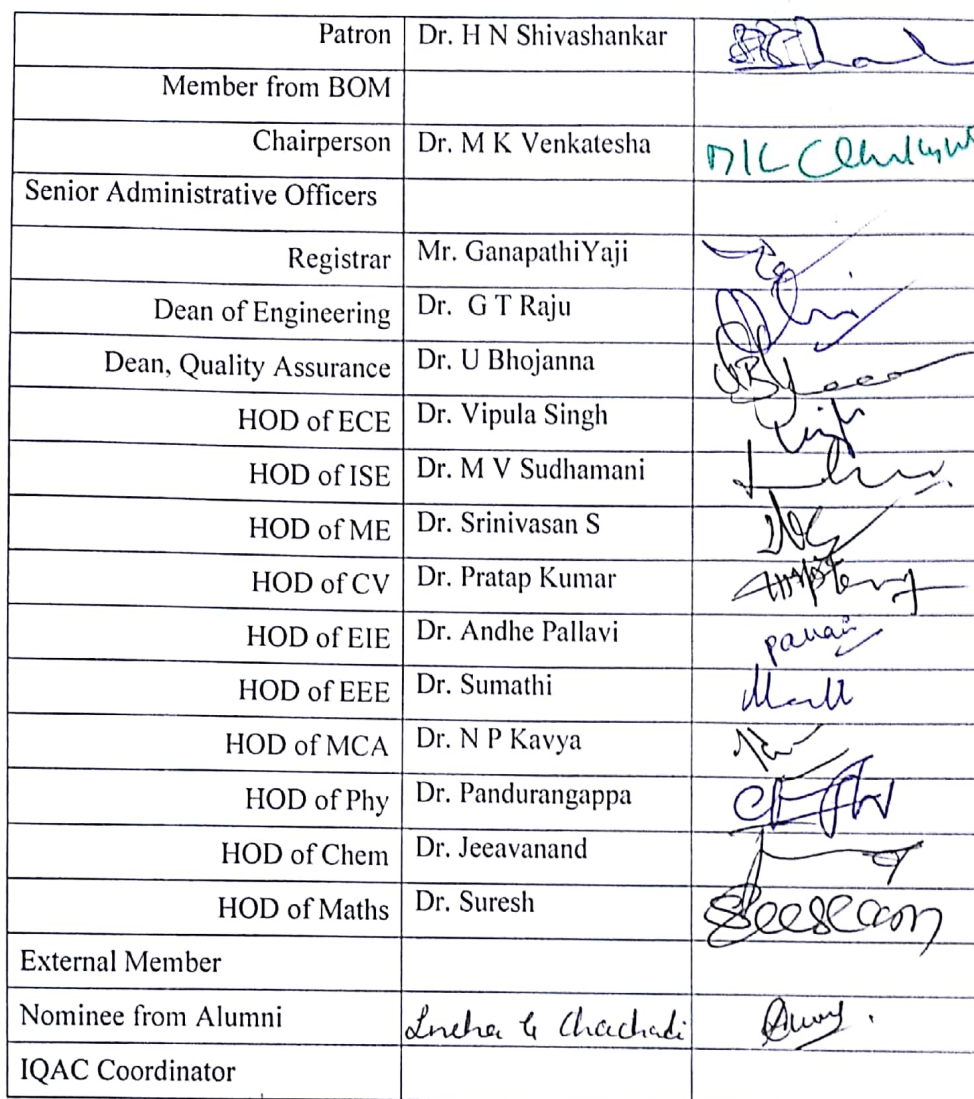 Patron Dr. H N Shivashankar
Member from BOM
Chairperson Dr. M K Venkatesha
Senior Administrative Officers
Registrar Mr. GanapathiYaji
Dean of Engineering Dr. G T Raju
Dean, Quality Assurance Dr. U Bhojanna
HOD of ECE Dr. Vipula Singh
HOD of ISE Dr. M V Sudhamani
HOD of ME Dr. Srinivasan S
HOD of CV Dr. Pratap Kumar
HOD of EIE Dr. Andhe Pallavi
HOD of EEE Dr. Sumathi
HOD of MCA Dr. N P Kavya
HOD of Phy Dr. Pandurangappa
HOD of Chem Dr. Jeeavanand
HOD of Maths Dr. Suresh
External Member
Nominee from Alumni Sneha G Chachadi
IQAC Coordinator